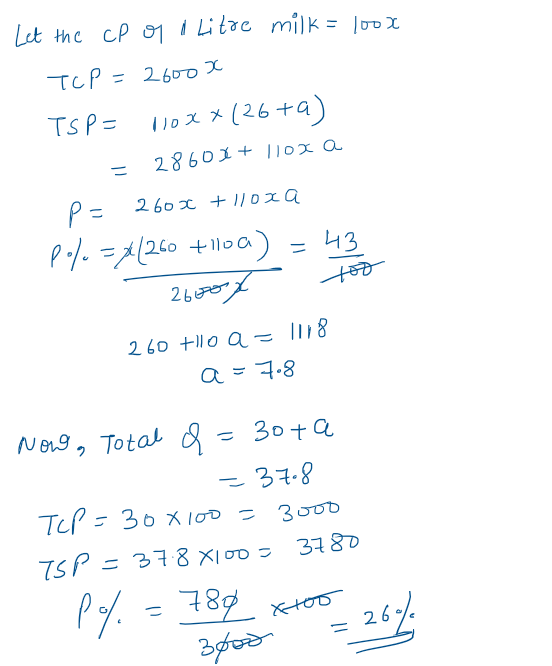 Let the CP of 1 Litre milk = 100x
TCP = 2600x
TSP = 110x × (26 + a)
= 2860x + 110x a
P = 260x + 110xa
P% = x(260 + 110a) / 2600x = 43/100
260 + 110 a = 1118
a = 7.8
Now, Total Q = 30 + a
= 37.8
TCP = 30 × 100 = 3000
TSP = 37.8 × 100 = 3780
P% = 780/3000 × 100 = 26%